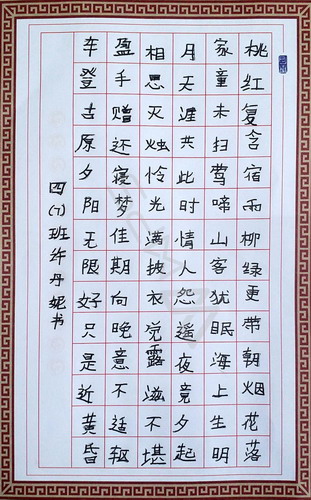 桃红复含宿雨柳绿更带朝烟花落
家童未扫莺啼山客犹眠海上生明
月天涯共此时情人怨遥夜竟夕起
相思灭烛怜光满披衣觉露滋不堪
盈手赠还寝梦佳期向晚意不适驱
车登古原夕阳无限好只是近黄昏
四(7)班许丹妮书